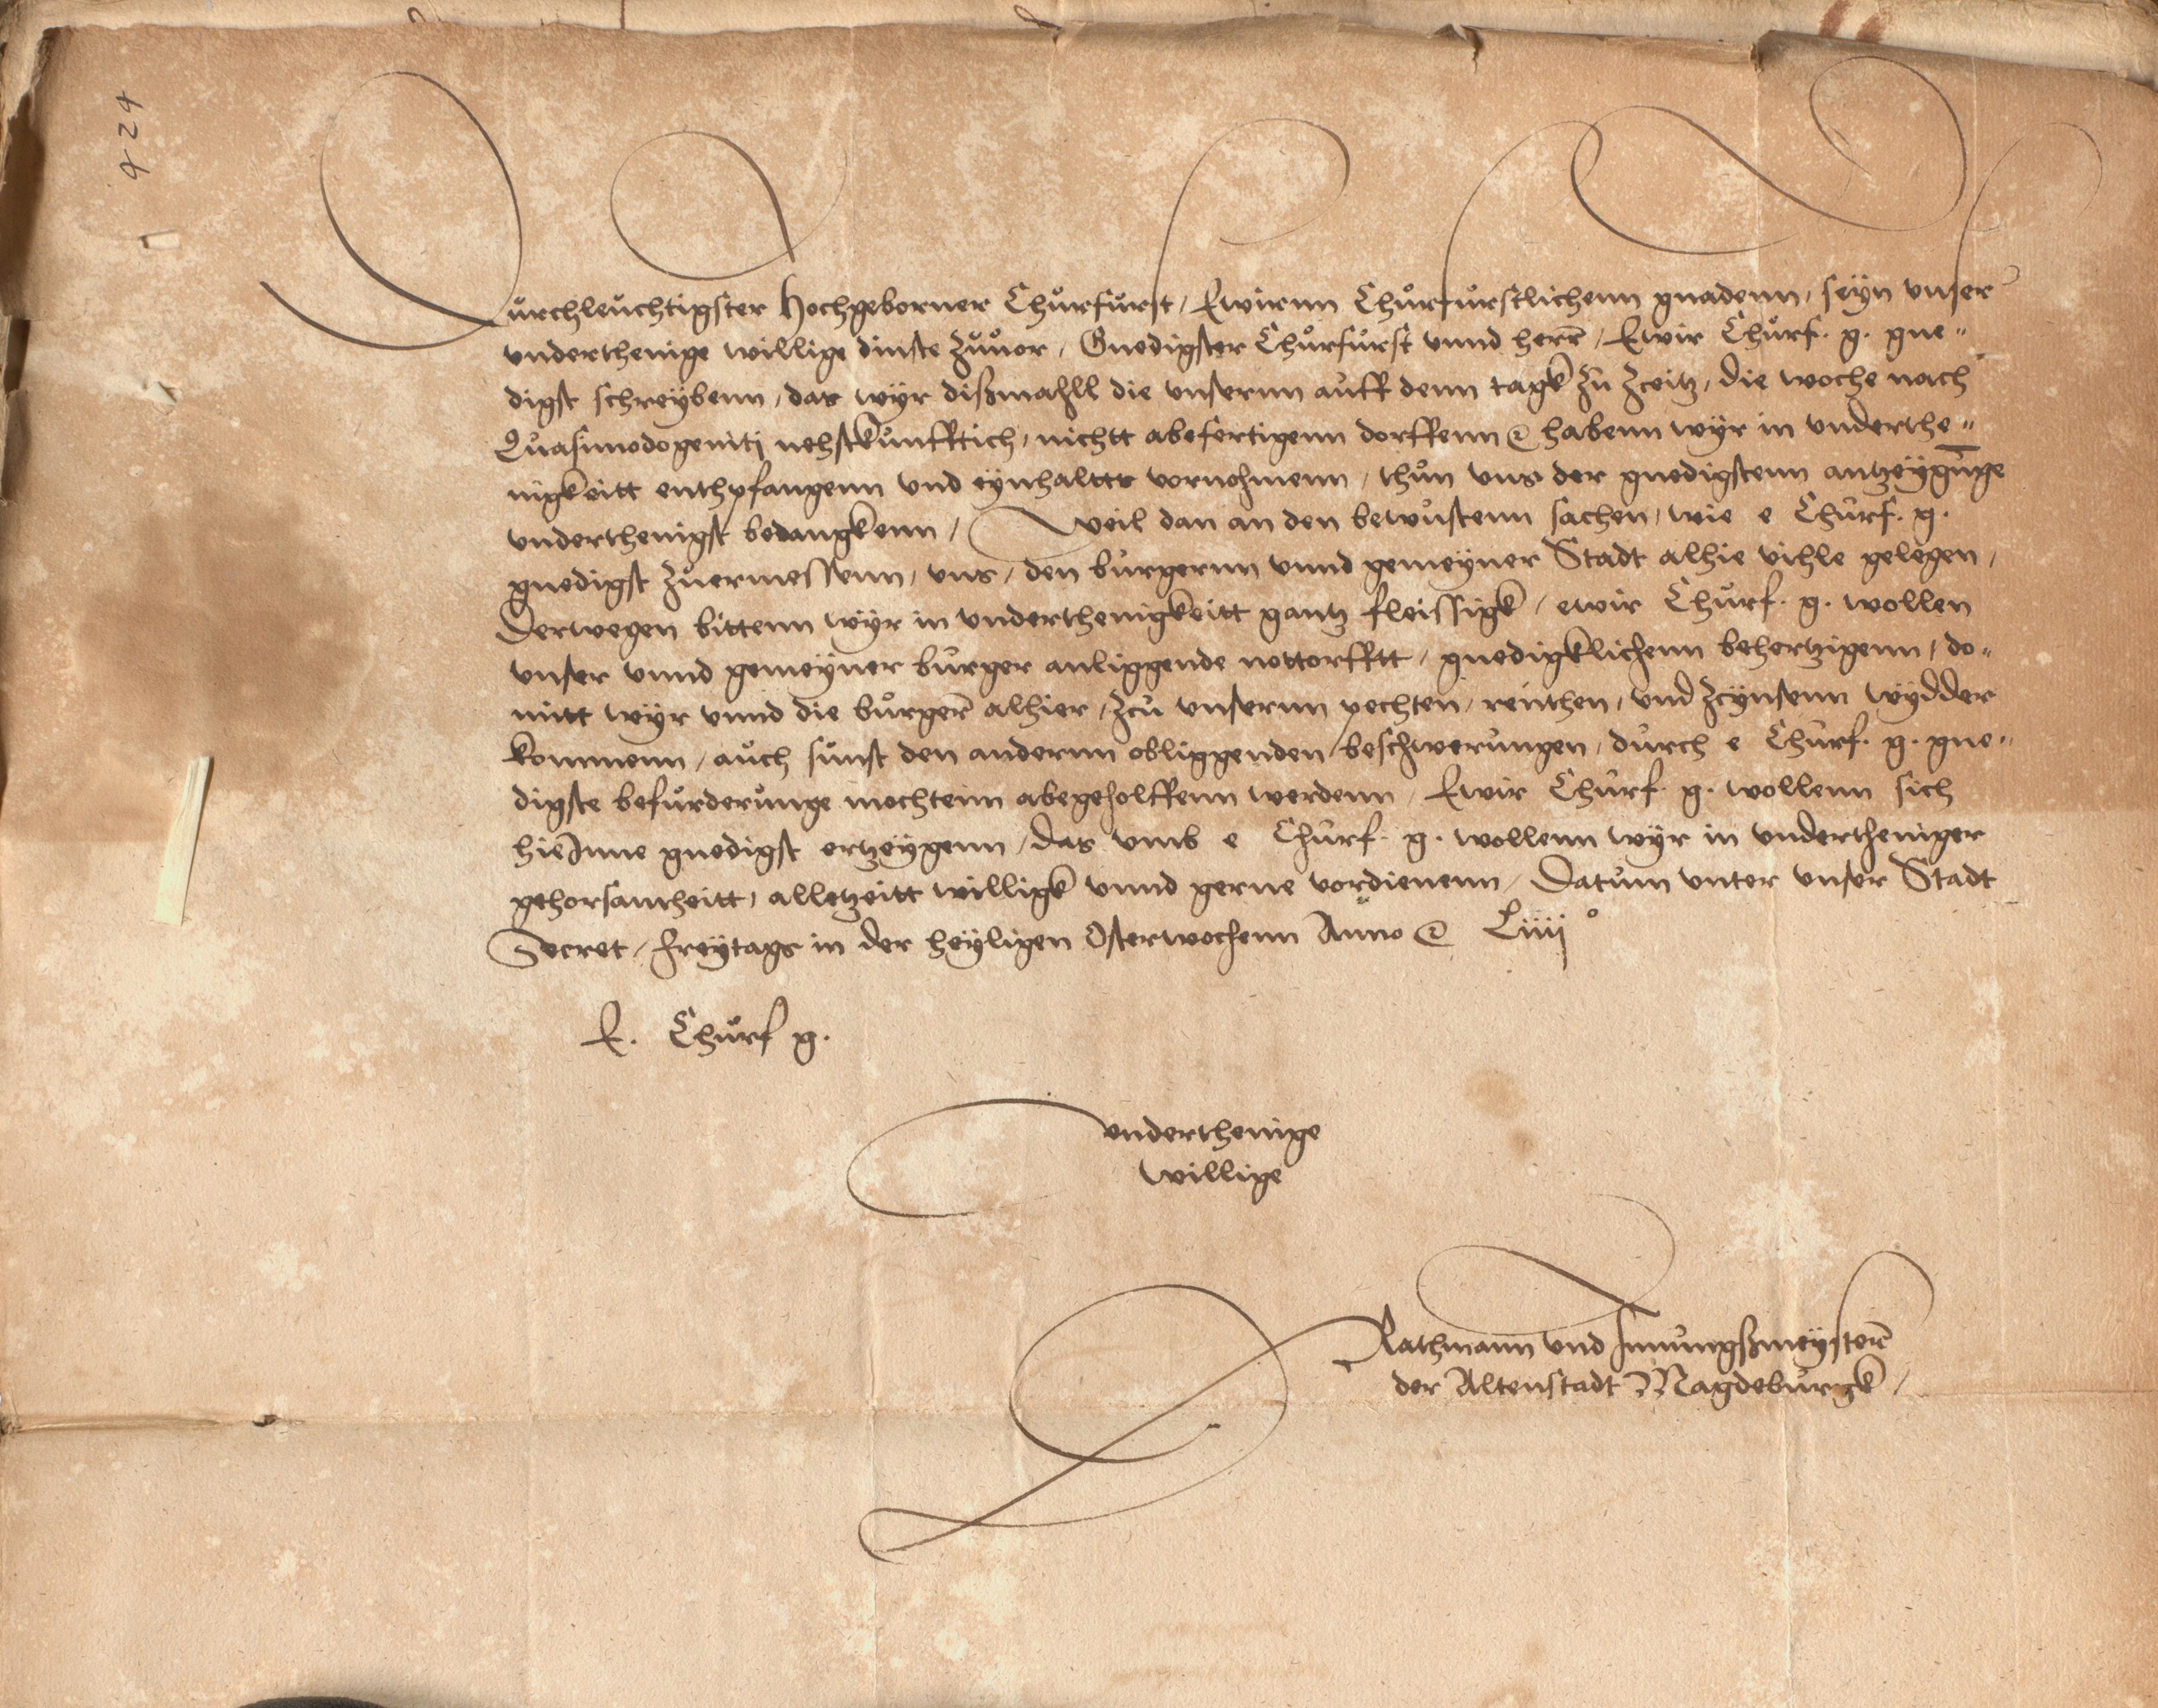 424
Durchleuchtigster Hochgeborner Churfurst, Ewirnn Churfurstlichenn gnadenn, seÿn vnser
vnderthenige willige dinste zuuor, Gnedigster Churfurst vnnd herr, Ewir Churf. g. gne-
digst schreÿbenn, das wÿr dißmahll die vnsernn auff denn tagk zu Zceitz, die woche nach
Quasimodogeniti nehstkunfftich, nichtt abefertigenn dorffenn ⁊c habenn wÿr in vnderthe-
nigkeitt enthpfangenn vnd eÿnhaltts vornohmenn, thun vns der gnedigstenn antzeÿgunge
vnderthenigst bedangkenn, Weil dan an den bewustenn sachen, wie e Churf. g.
gnedigst zuermessenn, vns, den burgernn vnnd gemeÿner Stadt alhie vihle gelegen,
Derwegen bittenn wÿr in vnderthenigkeitt gantz fleissigk, ewir Churf. g. wollen
vnser vnnd gemeÿner burger anliggende nottorfftt, gnedigklichenn behertzigenn, do-
mitt wÿr vnnd die burger alhier, zcu vnsernn pechten, renthen, vnd zcÿnsenn wÿdder
kommenn, auch sunst den andernn obliggenden beschwerungen, durch e Churf. g. gne-
digste befurderunge mochtenn abegeholffenn werdenn, Ewir Churf. g. wollenn sich
hieJnne gnedigst ertzeÿgenn, das vmb e Churf. g. wollenn wÿr in vndertheniger
gehorsamheitt, alletzeitt willigk vnnd gerne vordienenn, Datum vnter vnser Stadt
Secret, freÿtags in der heÿligen Osterwochenn Anno ⁊c Liiij°
E. Churf g.
vnderthenige
willige
Rathmann vnd Innungßmeÿster
der Altenstadt Magdeburgk,